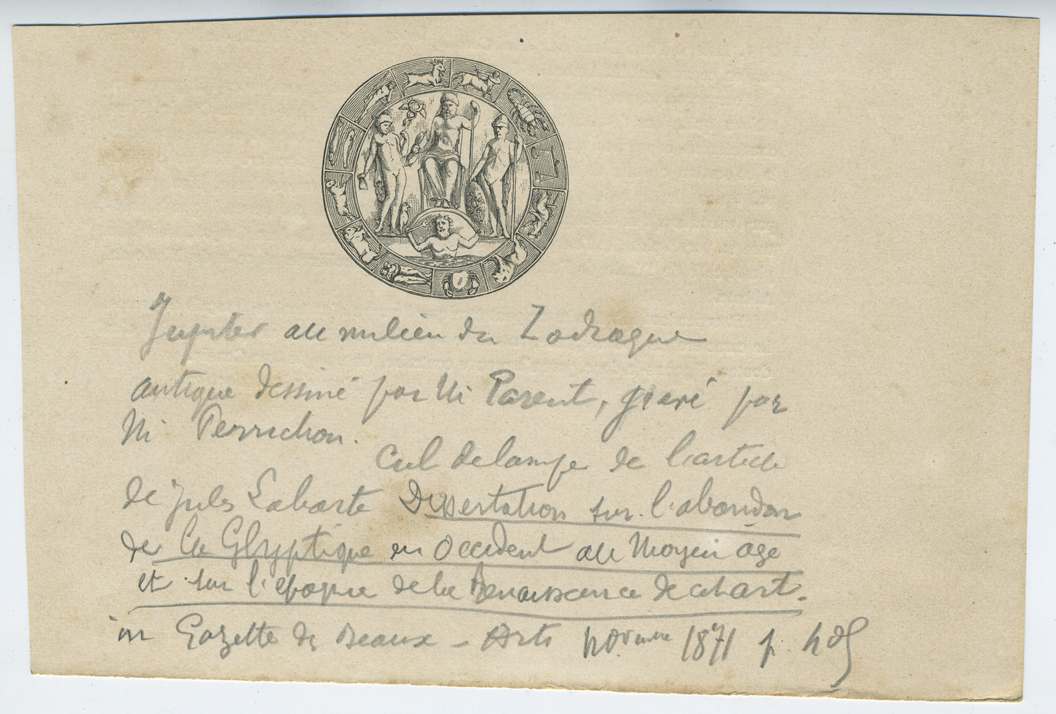 Jupiter au milieu du Zodiaque
antique dessiné par M Parent, gravé par
M Perrichon.
Cul de lampe de l'article
de Jules Labarte Dissertation sur l'abandon
de la Glyptique en Occident au Moyen age
et sur l'époque de la Renaissance de cet art.
in Gazette des Beaux-Arts novembre 1871 p.